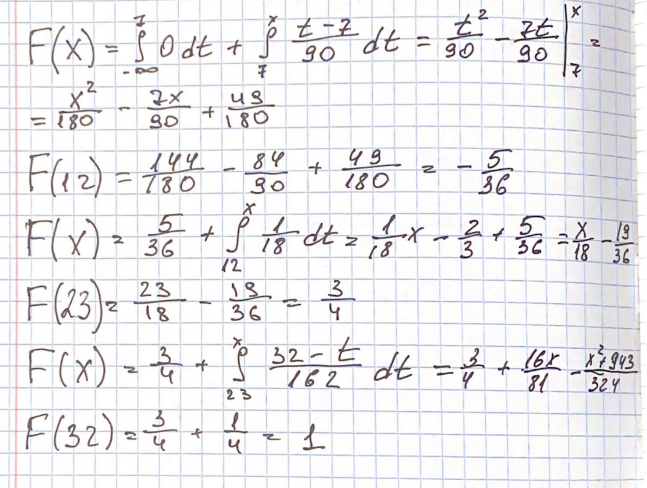 F(x) = ∫_{-∞}^{7} 0 dt + ∫_{7}^{x} (t-7)/90 dt = t²/90 - 7t/90 |_{7}^{x} =
= x²/180 - 7x/90 + 49/180
F(12) = 144/180 - 84/90 + 49/180 = - 5/36
F(x) = 5/36 + ∫_{12}^{x} 1/18 dt = 1/18 x - 2/3 + 5/36 = x/18 - 19/36
F(23) = 23/18 - 19/36 = 3/4
F(x) = 3/4 + ∫_{23}^{x} (32-t)/162 dt = 3/4 + 16x/81 - (x²+943)/324
F(32) = 3/4 + 1/4 = 1